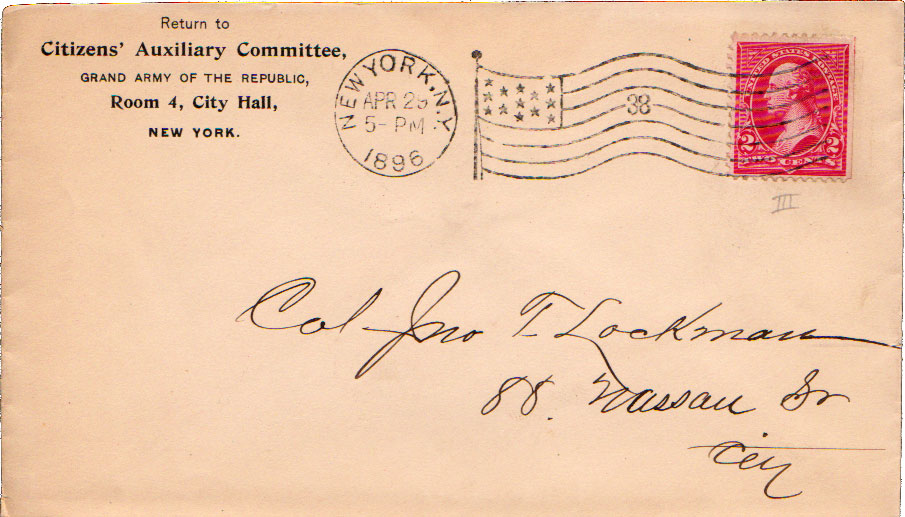 Return to
Citizens' Auxiliary Committee,
GRAND ARMY OF THE REPUBLIC,
Room 4, City Hall,
NEW YORK.
NEW YORK, N.Y.
APR 29
5- PM
1896
38
UNITED STATES POSTAGE
2 2
TWO CENTS
III
Col Jno T Lockman
88. Nassau St
City